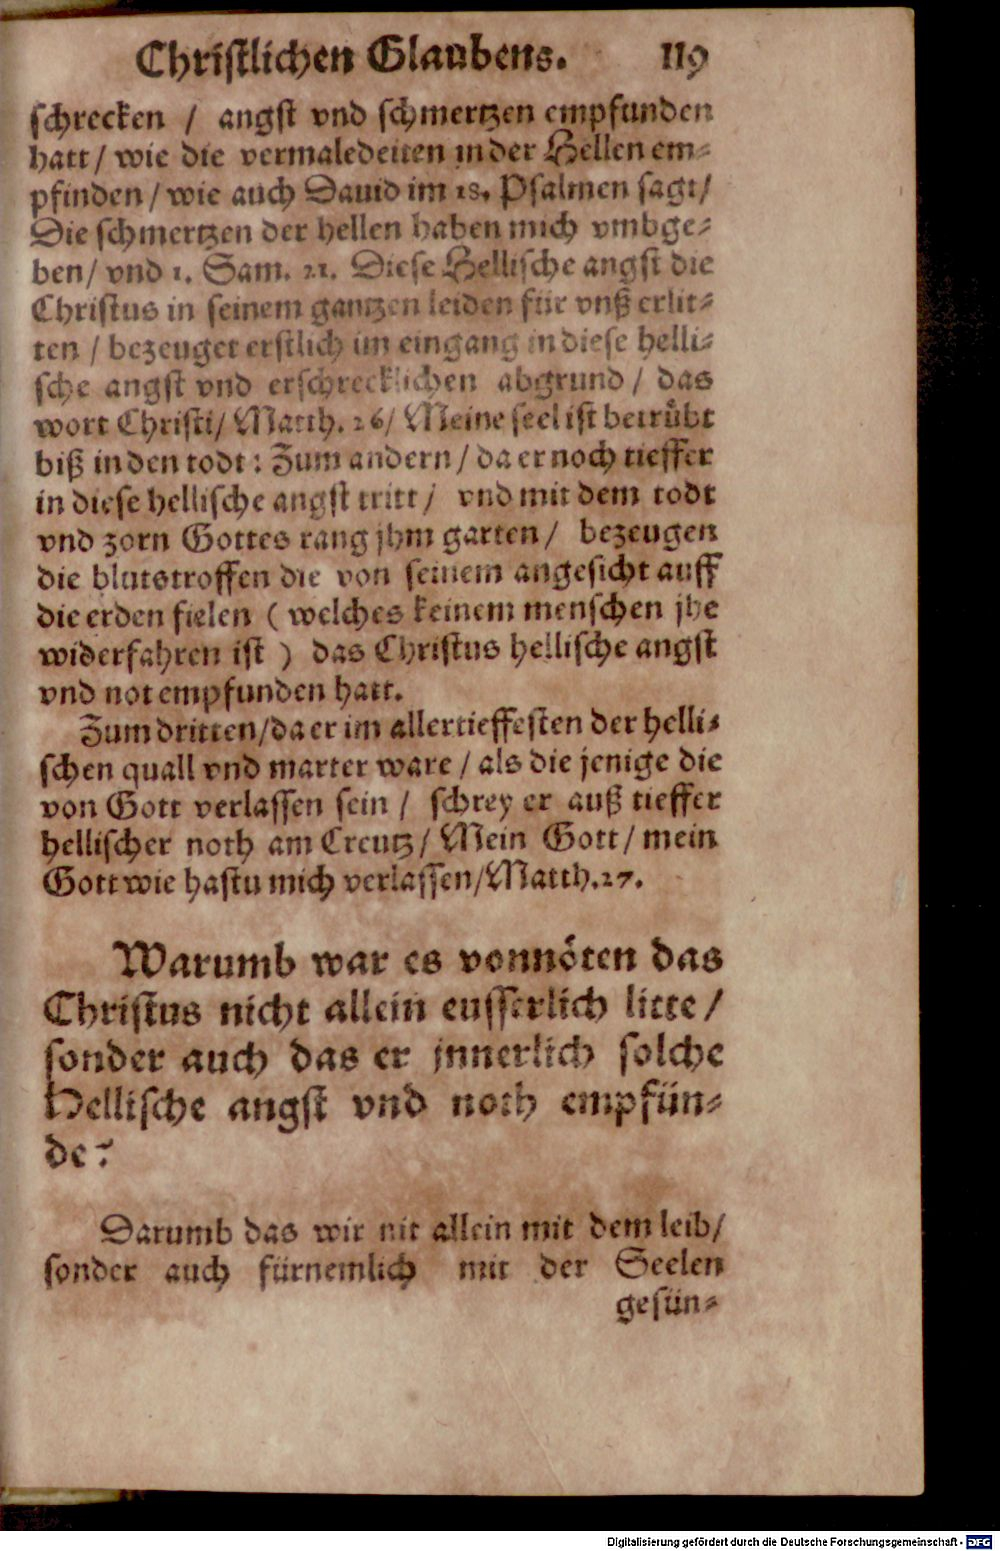 Christlichen Glaubens. 119
schrecken / angst vnd schmertzen empfunden
hatt / wie die vermaledeiten in der Hellen em-
pfinden / wie auch Dauid im 18. Psalmen sagt /
Die schmertzen der hellen haben mich vmbge-
ben / vnd 1. Sam. 21. Diese Hellische angst die
Christus in seinem gantzen leiden für vnß erlit-
ten / bezeuget erstlich im eingang in diese helli-
sche angst vnd erschrecklichen abgrund / das
wort Christi / Matth. 26 / Meine seel ist betrůbt
biß in den todt : Zum andern / da er noch tieffer
in diese hellische angst tritt / vnd mit dem todt
vnd zorn Gottes rang jhm garten / bezeugen
die blutstroffen die von seinem angesicht auff
die erden fielen ( welches keinem menschen jhe
widerfahren ist ) das Christus hellische angst
vnd not empfunden hatt.
Zum dritten / da er im allertieffesten der helli-
schen quall vnd marter ware / als die jenige die
von Gott verlassen sein / schrey er auß tieffer
hellischer noth am Creutz / Mein Gott / mein
Gott wie hastu mich verlassen / Matth. 27.
Warumb war es vonnöten das
Christus nicht allein eusserlich litte /
sonder auch das er jnnerlich solche
Hellische angst vnd noth empfün-
de?
Darumb das wir nit allein mit dem leib /
sonder auch fürnemlich mit der Seelen
gesün-
Digitalisierung gefördert durch die Deutsche Forschungsgemeinschaft - DFG